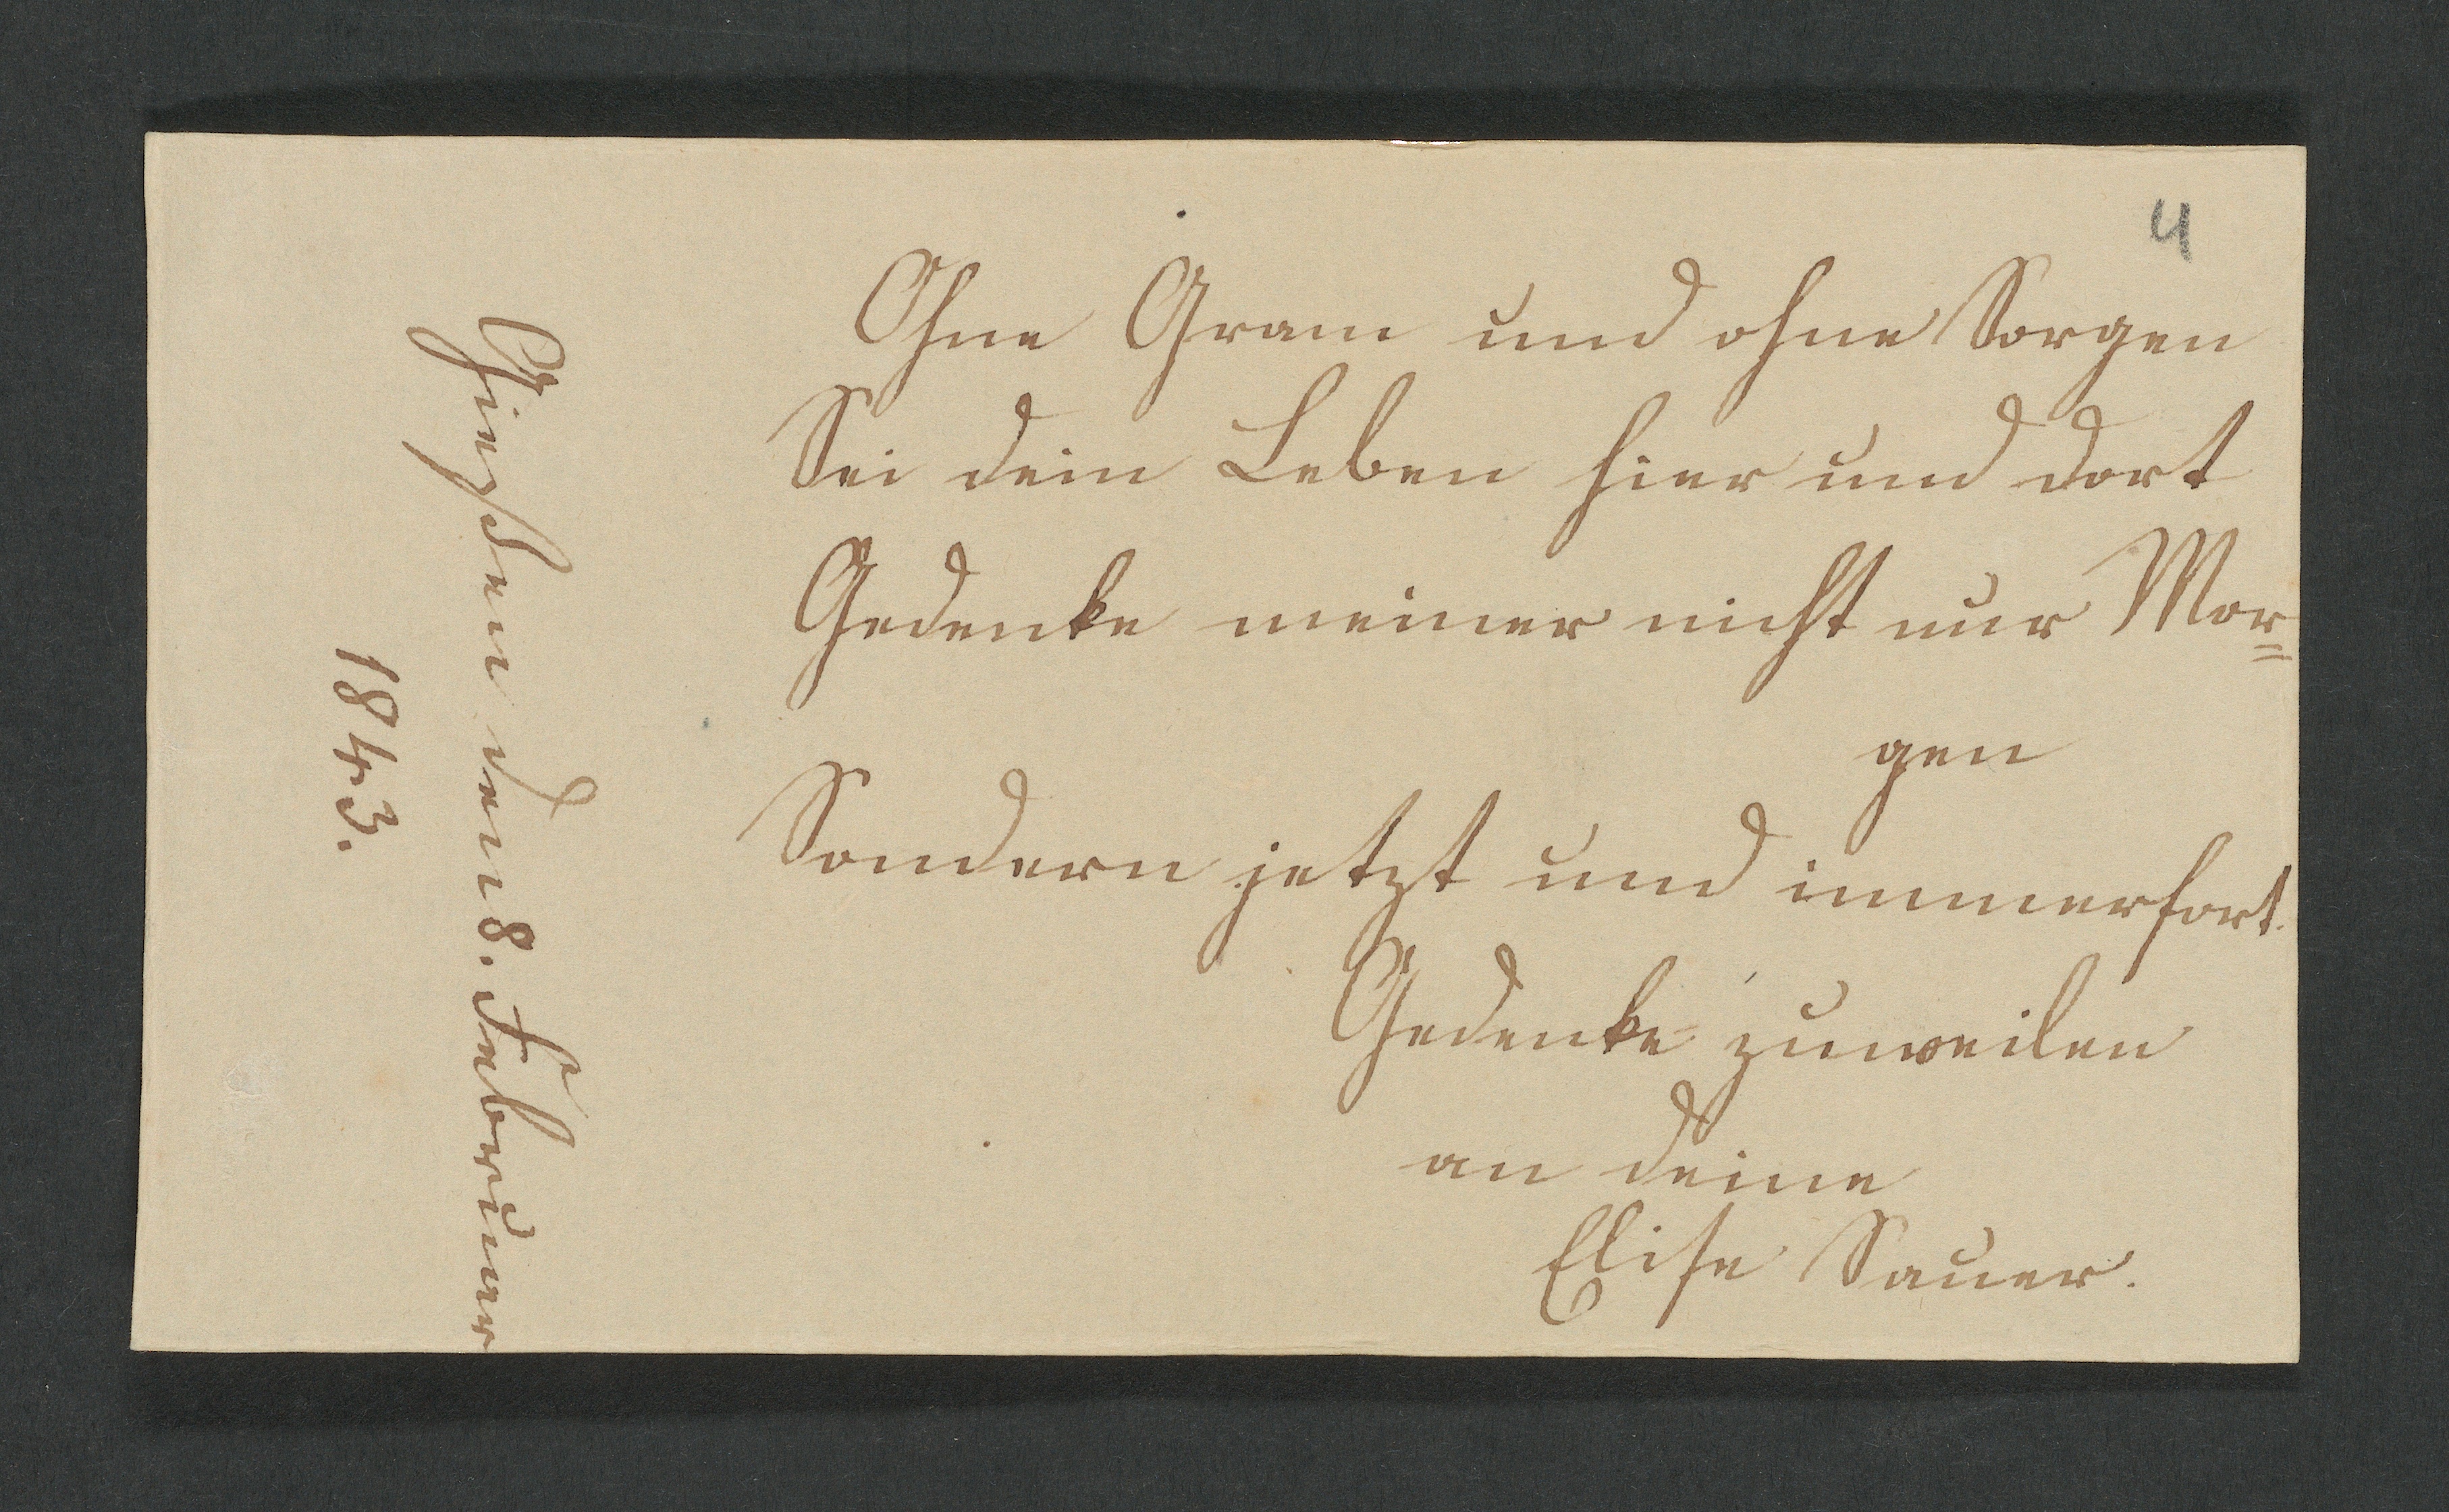 4
Ohne Gram und ohne Sorgen
Sei dein Leben hier und dort
Gedenke meiner nicht nur Mor=
gen
Sondern jetzt und immerfort.
Gedenke zuweilen
an deine
Elise Sauer.
Gießen den 8. Februar
1843.